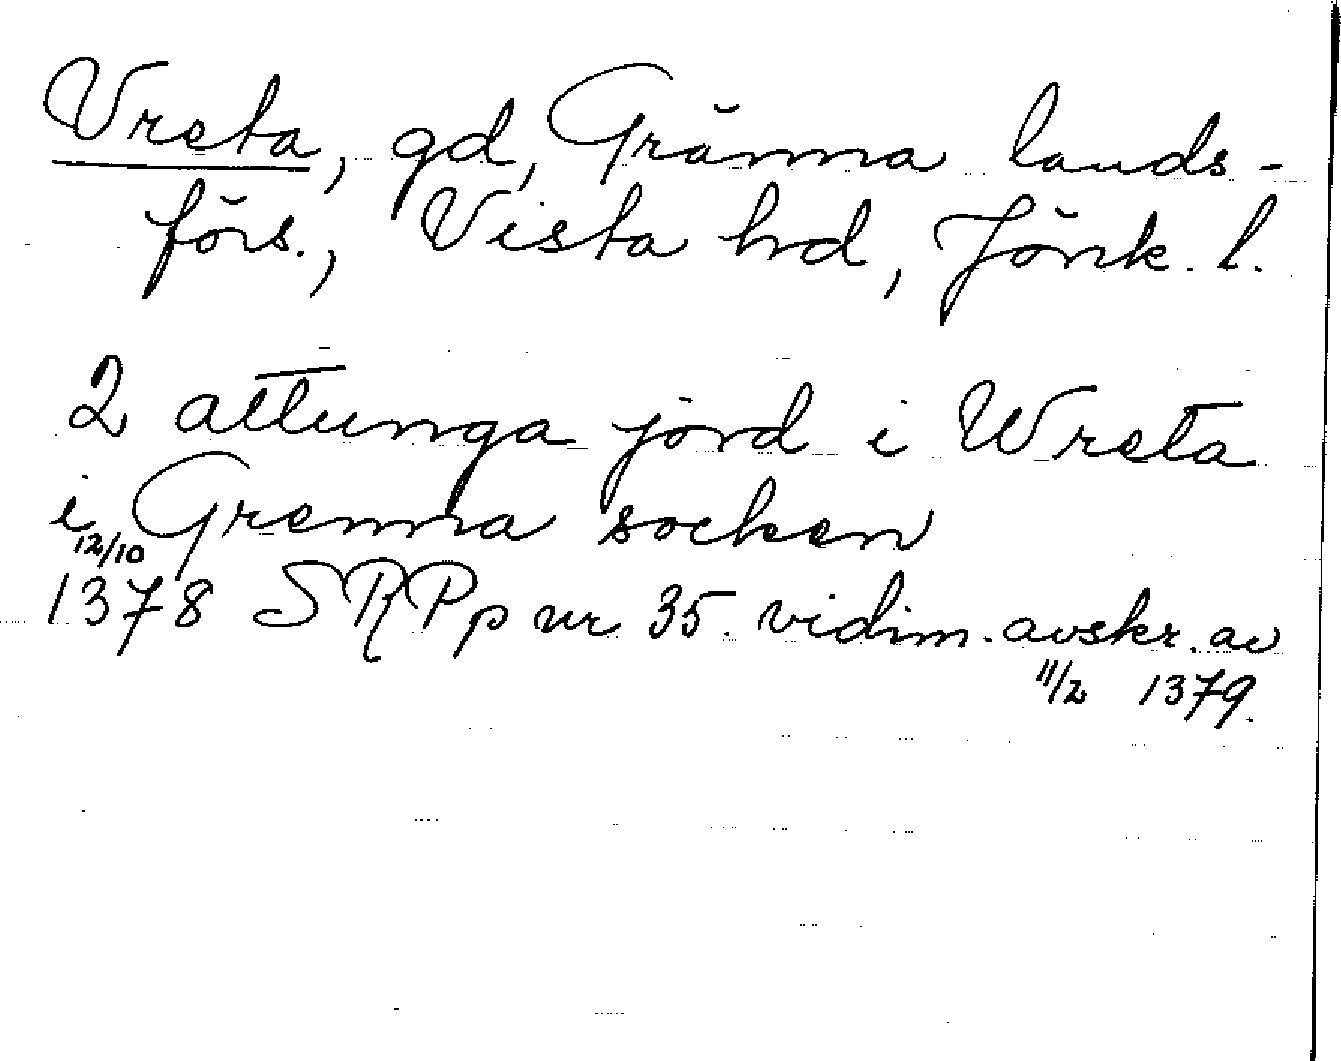 Vreta, gd, Gränna lands-
förs., Vista hd, Jönk. l.
2 attunga jord i Wreta
i Grenna socken
12/10
1378 SRPp nr 35. vidim. avskr. av
11/2 1379.